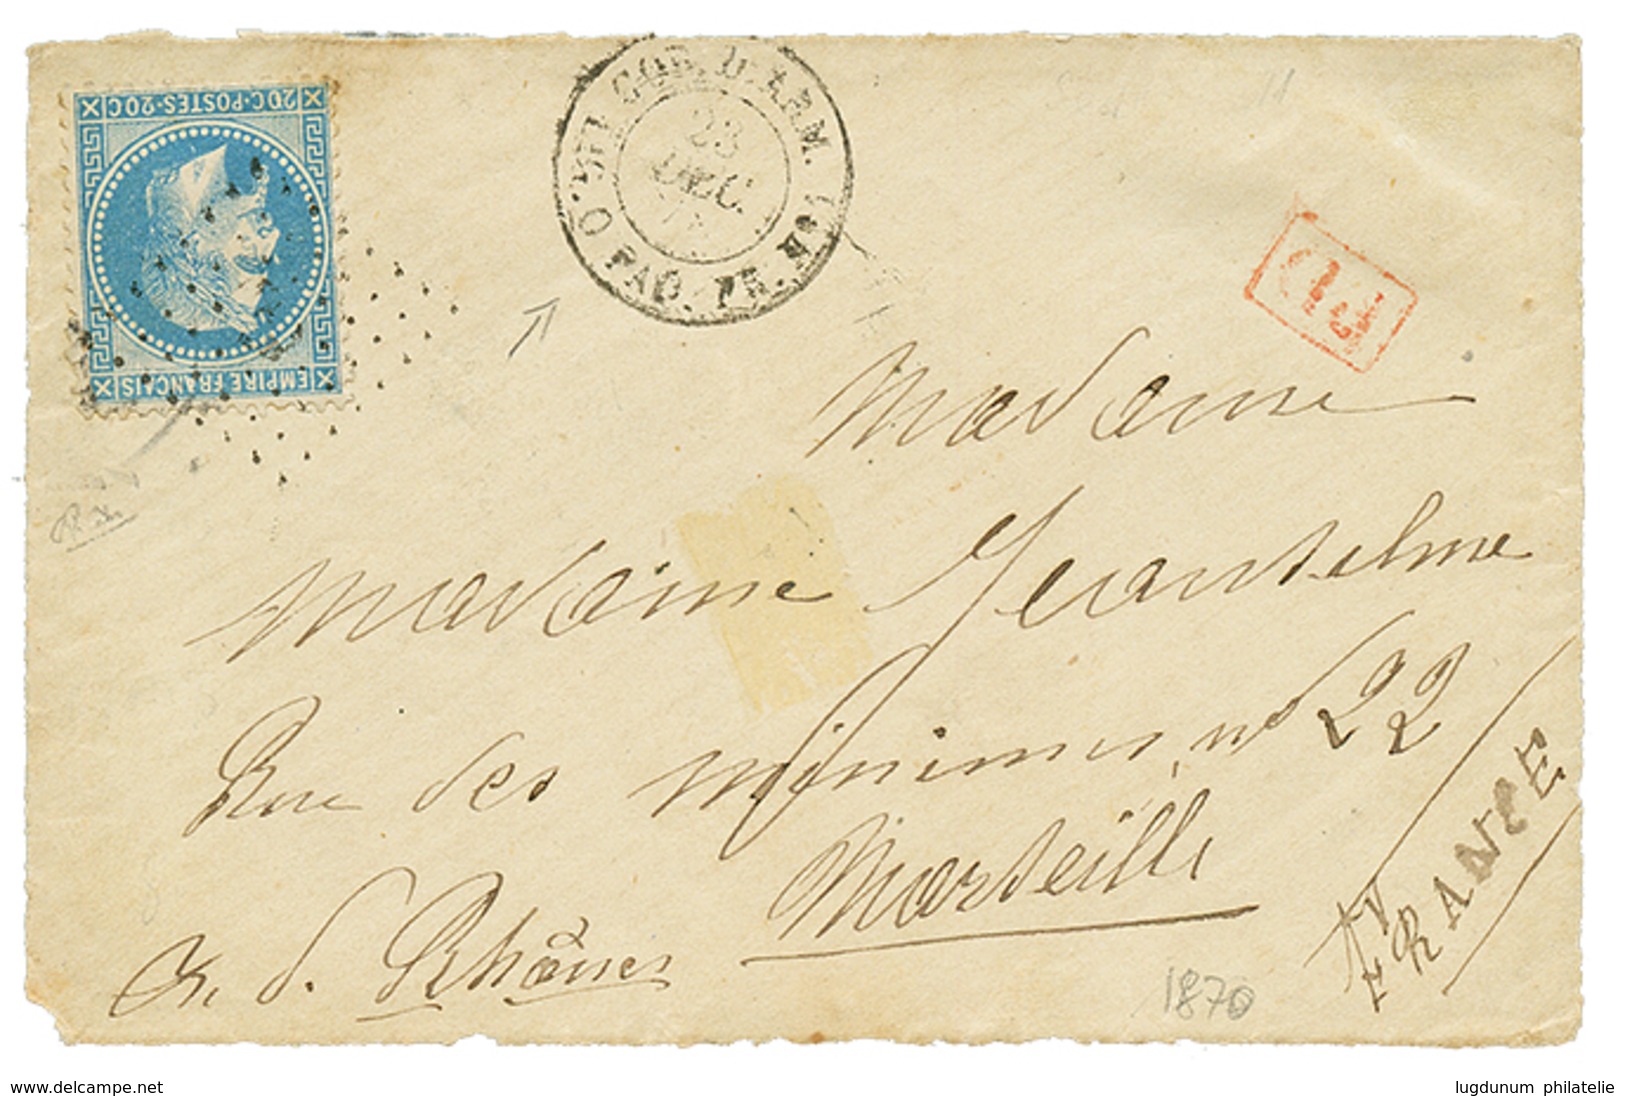 20C·POSTES·20C
EMPIRE FRANÇAIS
COR. D. ARM.
PAQ. FR. N
23
DEC.
P.D.
Madame
Madame Jeanselme
Rue des Minimes, no 22
Marseille
B. d. Rhônes
FRANCE
1870
www.delcampe.net
lugdunum philatelie